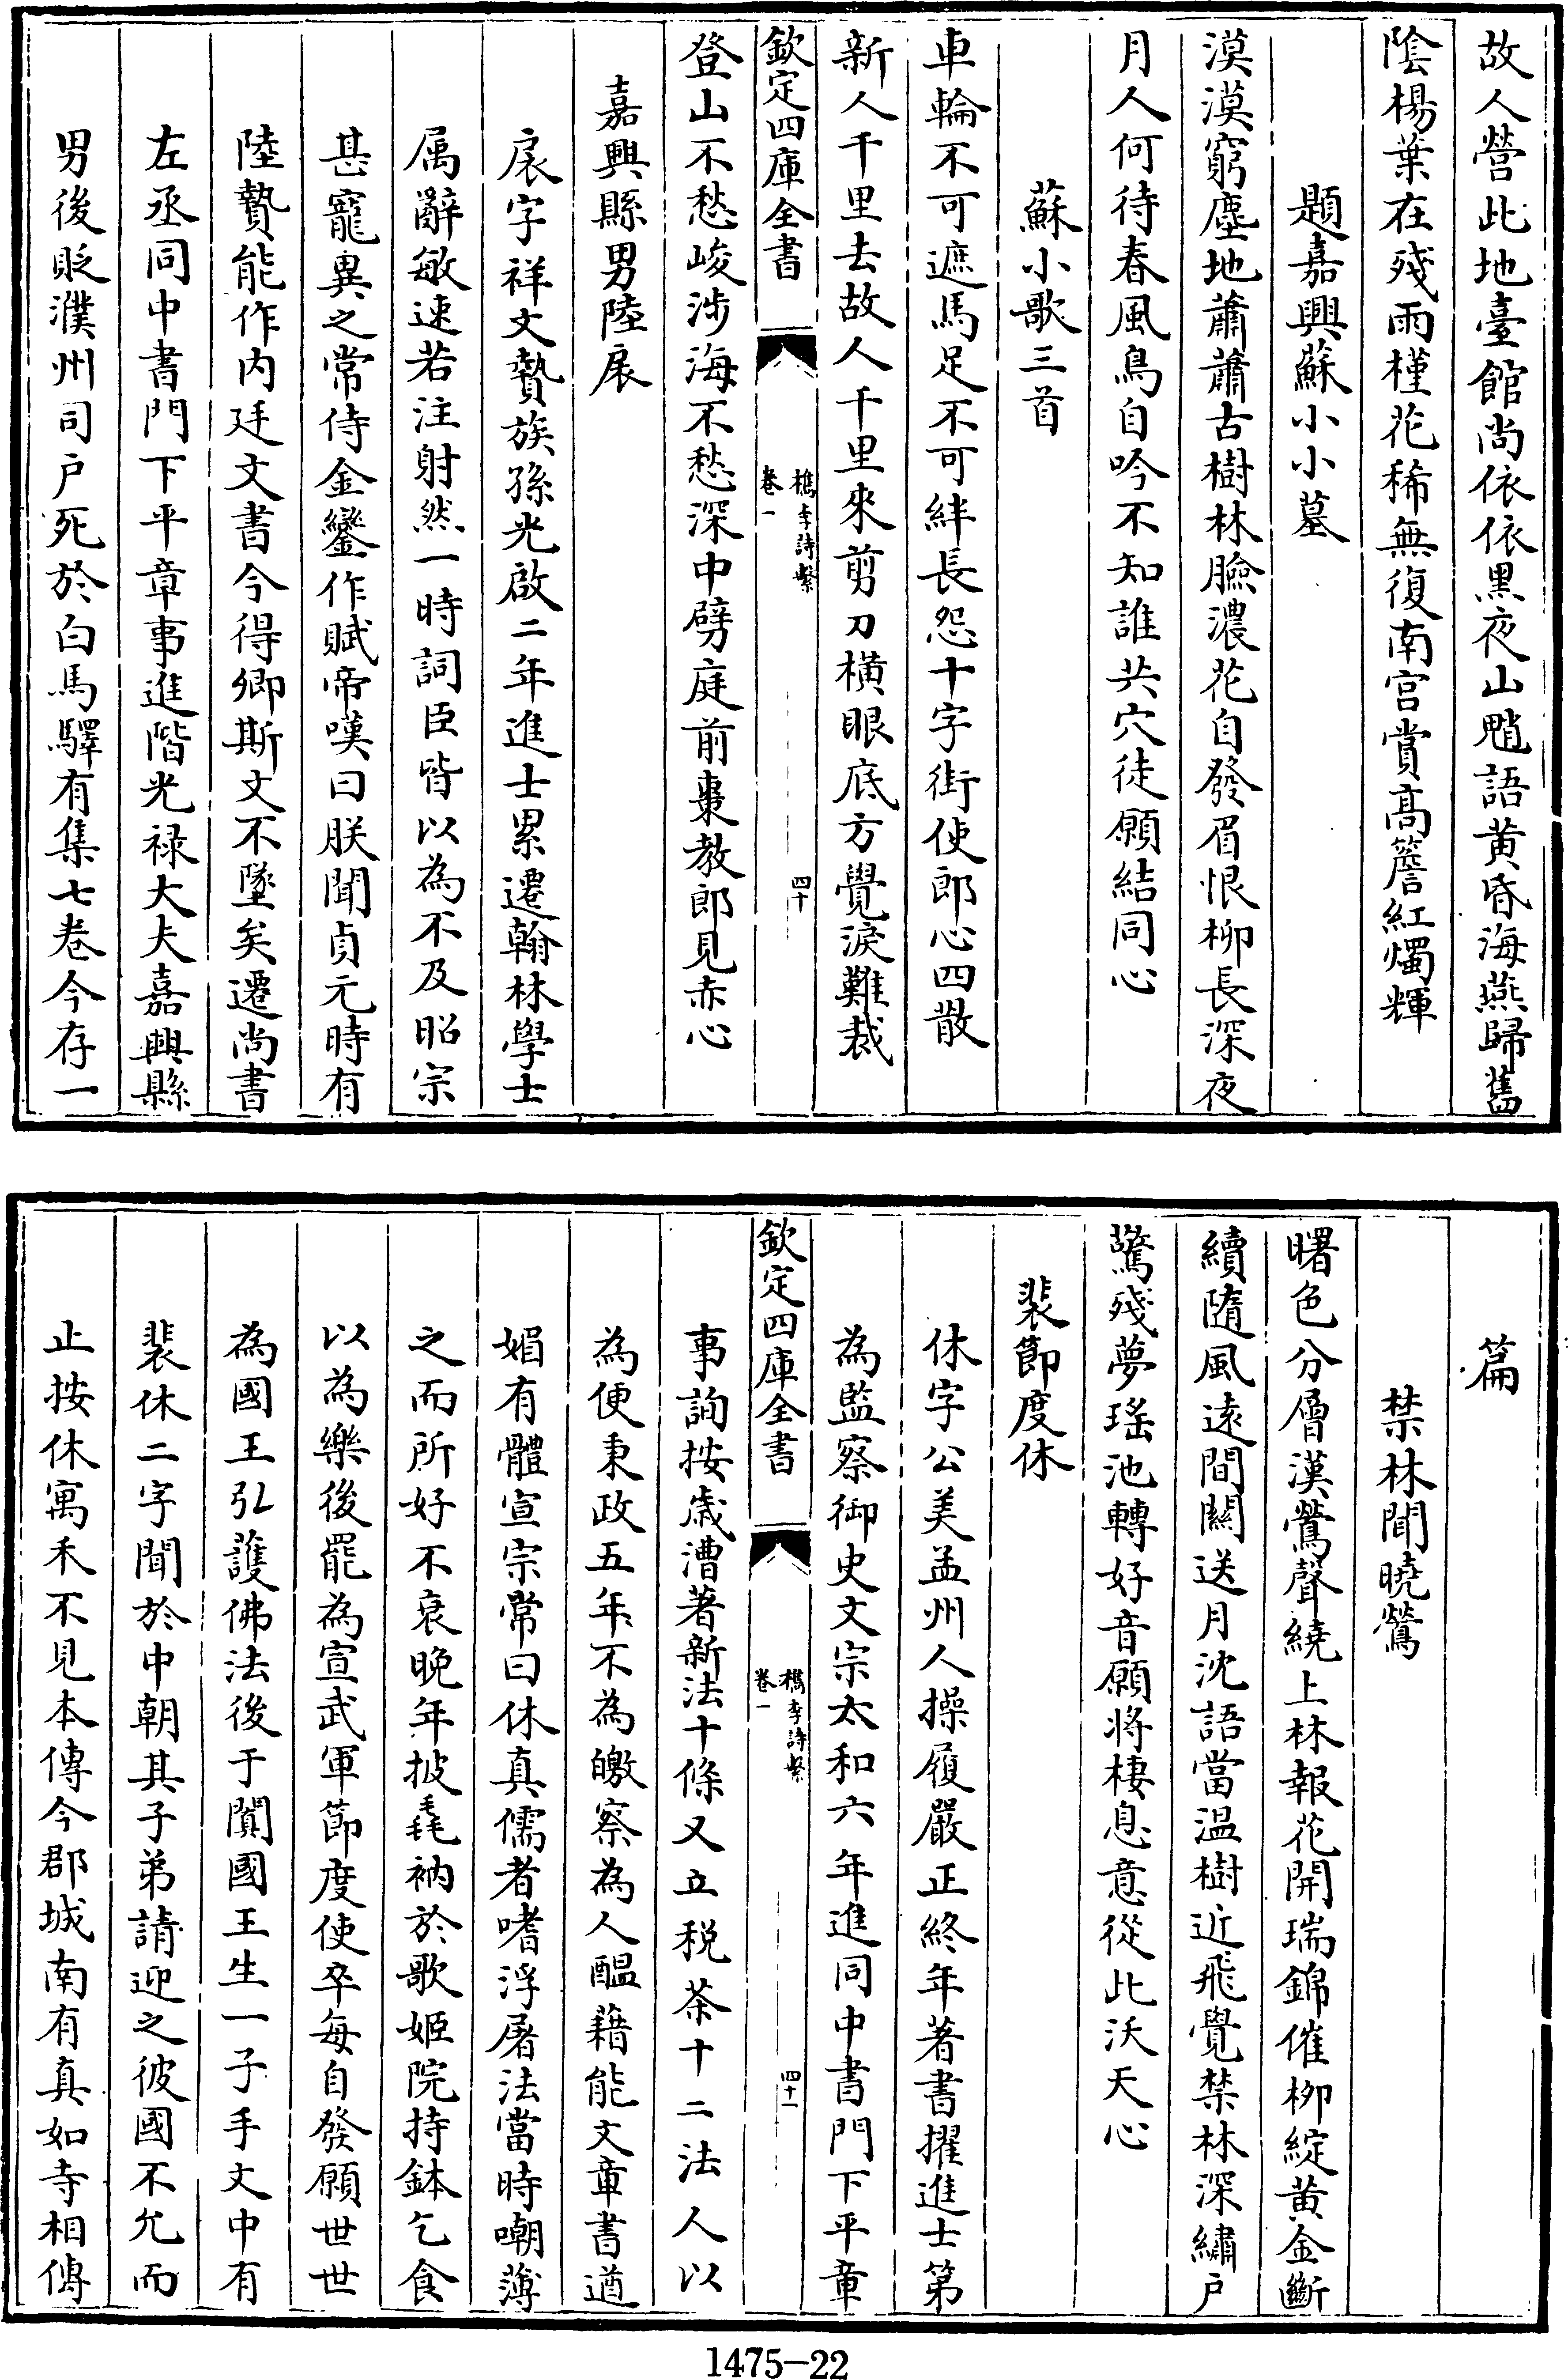 故人營此地臺館尚依依黑夜山魈語黄昏海燕歸舊
陰楊葉在殘雨槿花稀無復南宫賞髙簷紅燭輝
題嘉興蘇小小墓
漠漠窮塵地蕭蕭古樹林臉濃花自發眉恨柳長深夜
月人何待春風鳥自吟不知誰共穴徒願結同心
蘇小歌三首
車輪不可遮馬足不可絆長怨十字街使郎心四散
新人千里去故人千里來剪刀横眼底方覺淚難裁
欽定四庫全書
檇李詩繫
卷一
四十
登山不愁峻涉海不愁深中劈庭前棗教郎見赤心
嘉興縣男陸扆
扆字祥文贄族孫光啟二年進士累遷翰林學士
属辭敏速若注射然一時詞臣皆以為不及昭宗
甚寵異之常侍金鑾作賦帝嘆曰朕聞貞元時有
陸贄能作内廷文書今得卿斯文不墜矣遷尚書
左丞同中書門下平章事進階光禄大夫嘉興縣
男後貶濮州司户死於白馬驛有集七卷今存一
篇
禁林聞曉鶯
曙色分層漢鶯聲繞上林報花開瑞錦催柳綻黄金斷
續隨風遠間關送月沈語當温樹近飛覺禁林深繡户
驚殘夢瑤池轉好音願將棲息意從此沃天心
裴節度休
休字公美孟州人操履嚴正終年著書擢進士第
為監察御史文宗太和六年進同中書門下平章
欽定四庫全書
檇李詩繫
卷一
四十一
事詢按歳漕著新法十條又立税茶十二法人以
為便秉政五年不為皦察為人醖藉能文章書遒
媚有體宣宗常曰休真儒者嗜浮屠法當時嘲薄
之而所好不衰晚年披毳衲於歌姬院持鉢乞食
以為樂後罷為宣武軍節度使卒每自發願世世
為國王弘護佛法後于闐國王生一子手文中有
裴休二字聞於中朝其子弟請迎之彼國不允而
止按休寓禾不見本傳今郡城南有真如寺相傳
1475-22